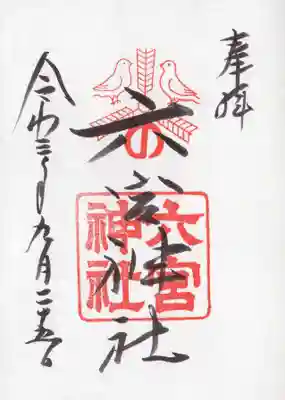 奉拝
六宮神社
六宮
神社
令和三年九月二十五日